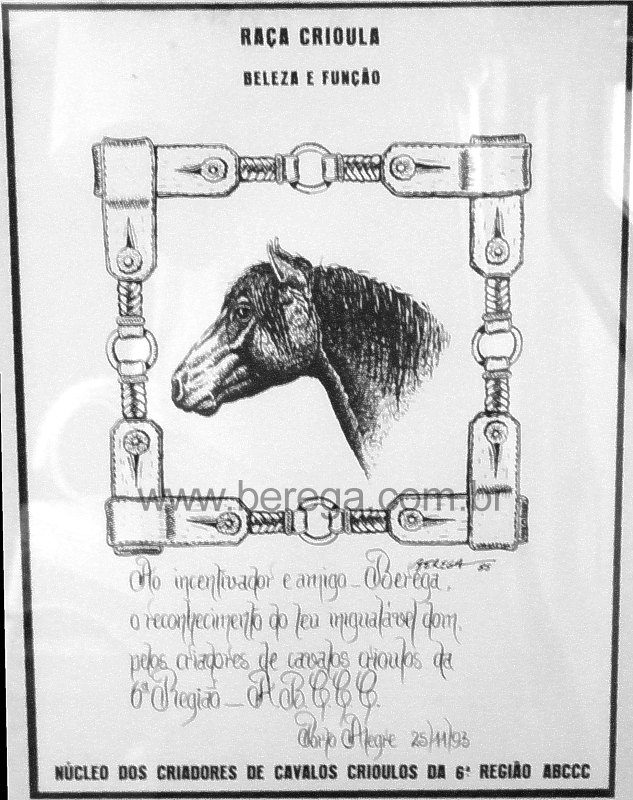 RAÇA CRIOULA
BELEZA E FUNÇÃO
www.berega.com.br
BEREGA 85
Ao incentivador e amigo - Berega,
o reconhecimento do teu inigualável dom,
pelos criadores de cavalos crioulos da
6ª Região - ABCCC.
Porto Alegre 25/11/93
NÚCLEO DOS CRIADORES DE CAVALOS CRIOULOS DA 6ª REGIÃO ABCCC